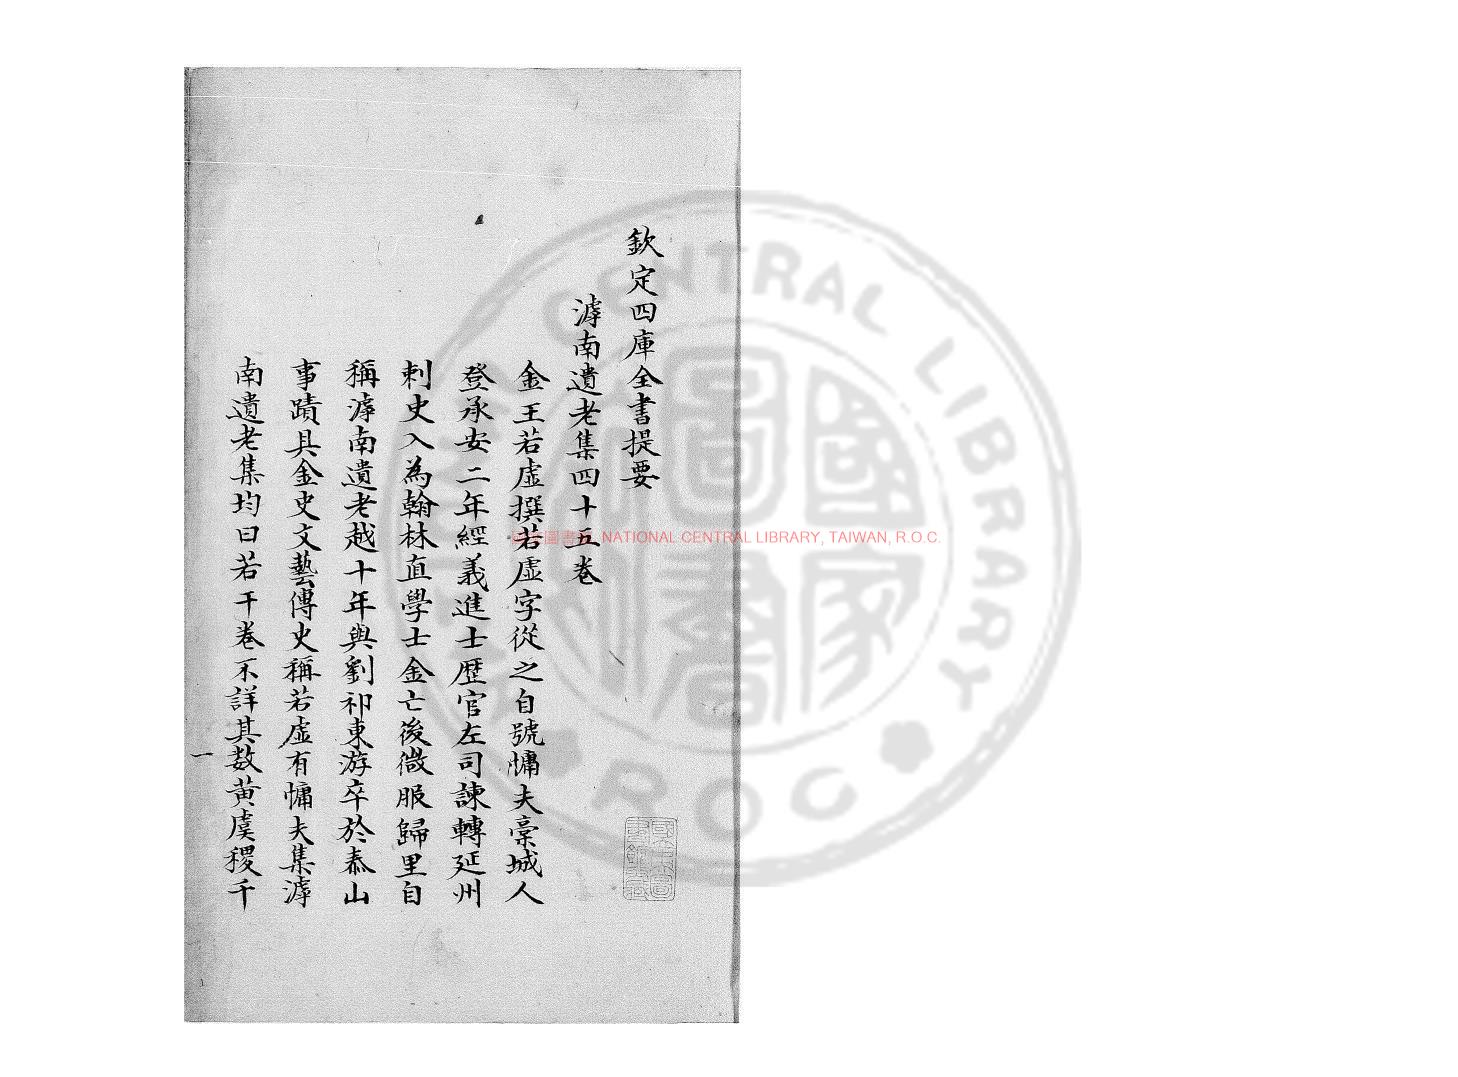 欽定四庫全書提要
滹南遺老集四十五卷
金王若虛撰若虛字從之自號慵夫藁城人
登承安二年經義進士歷官左司諫轉延州
刺史入為翰林直學士金亡後微服歸里自
稱滹南遺老越十年與劉祁東游卒於泰山
事蹟具金史文藝傳史稱若虛有慵夫集滹
南遺老集均曰若干卷不詳其數黃虞稷千
一
國家圖書館 NATIONAL CENTRAL LIBRARY, TAIWAN, R.O.C.
CENTRAL LIBRARY
R.O.C
國家圖書